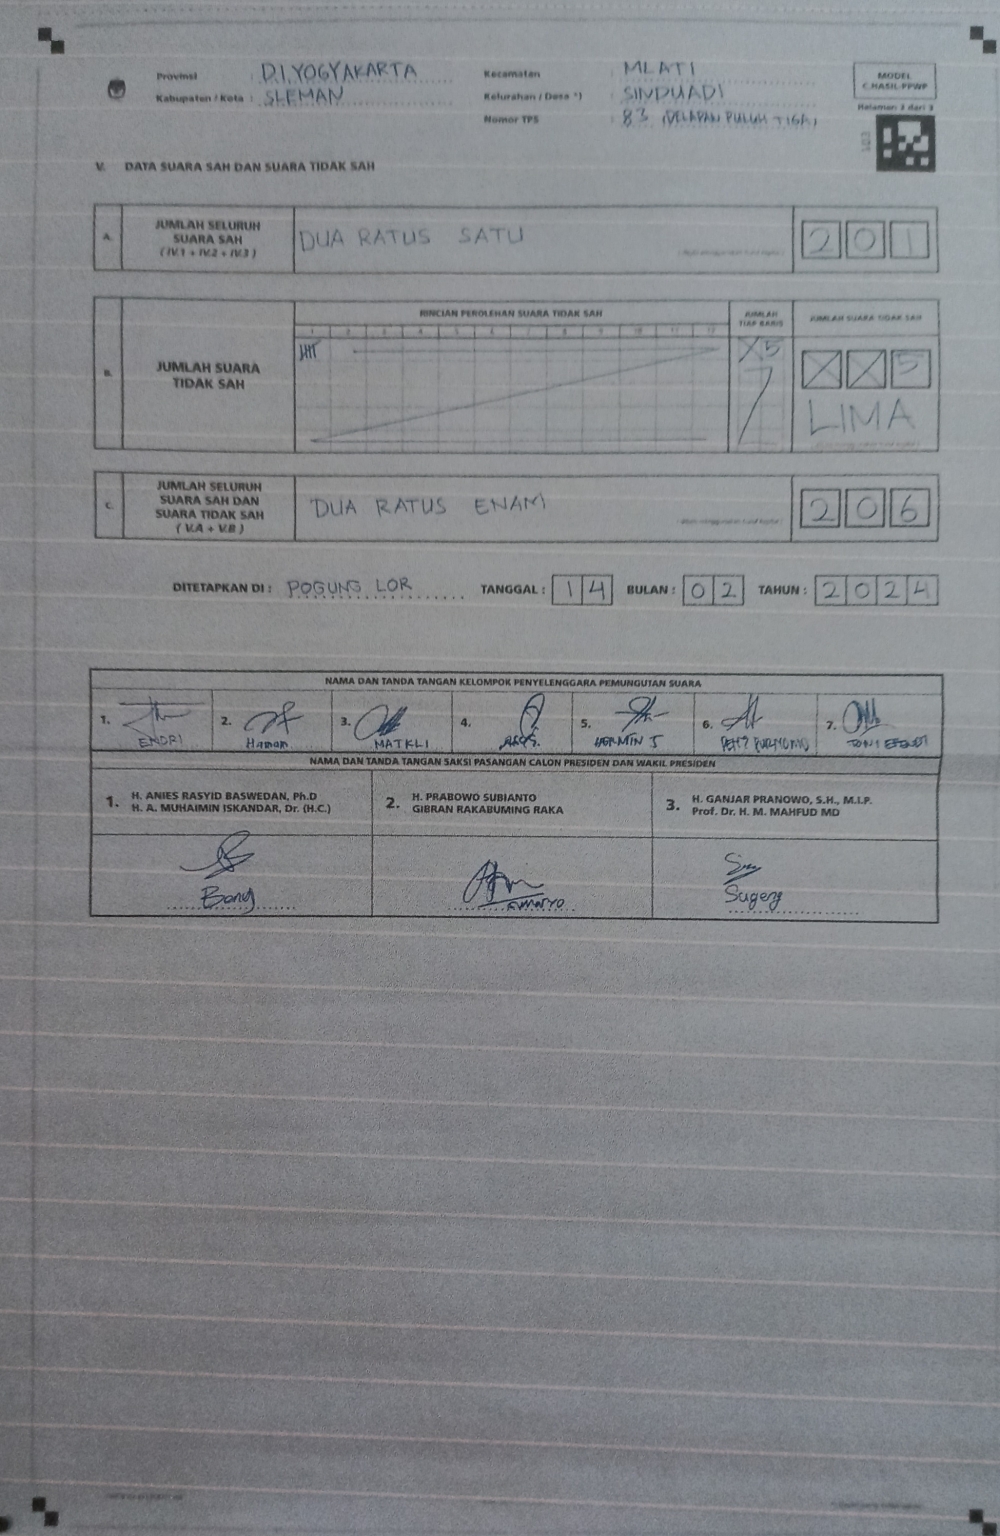 Provinsi : D.I. YOGYAKARTA
Kabupaten / Kota : SLEMAN
Kecamatan : MLATI
Kelurahan / Desa *) : SINDUADI
Nomor TPS : 83 (DELAPAN PULUH TIGA)
MODEL
C.HASIL-PPWP
Halaman 3 dari 3
V. DATA SUARA SAH DAN SUARA TIDAK SAH
A. JUMLAH SELURUH SUARA SAH ( IV.1 + IV.2 + IV.3 ) DUA RATUS SATU 2 0 1
B. JUMLAH SUARA TIDAK SAH
RINCIAN PEROLEHAN SUARA TIDAK SAH
JUMLAH TIAP BARIS
JUMLAH SUARA TIDAK SAH
1 2 3 4 5 6 7 8 9 10 11 12
X 5
X X 5
LIMA
C. JUMLAH SELURUH SUARA SAH DAN SUARA TIDAK SAH ( V.A + V.B ) DUA RATUS ENAM 2 0 6
DITETAPKAN DI : POGUNG LOR TANGGAL : 14 BULAN : 02 TAHUN : 2024
NAMA DAN TANDA TANGAN KELOMPOK PENYELENGGARA PEMUNGUTAN SUARA
1. 2. 3. 4. 5. 6. 7.
ENDRI MATKLI HERMIN J TONI EFENDI
NAMA DAN TANDA TANGAN SAKSI PASANGAN CALON PRESIDEN DAN WAKIL PRESIDEN
1. H. ANIES RASYID BASWEDAN, Ph.D
H. A. MUHAIMIN ISKANDAR, Dr. (H.C.)
2. H. PRABOWO SUBIANTO
GIBRAN RAKABUMING RAKA
3. H. GANJAR PRANOWO, S.H., M.I.P.
Prof. Dr. H. M. MAHFUD MD
Sugeng